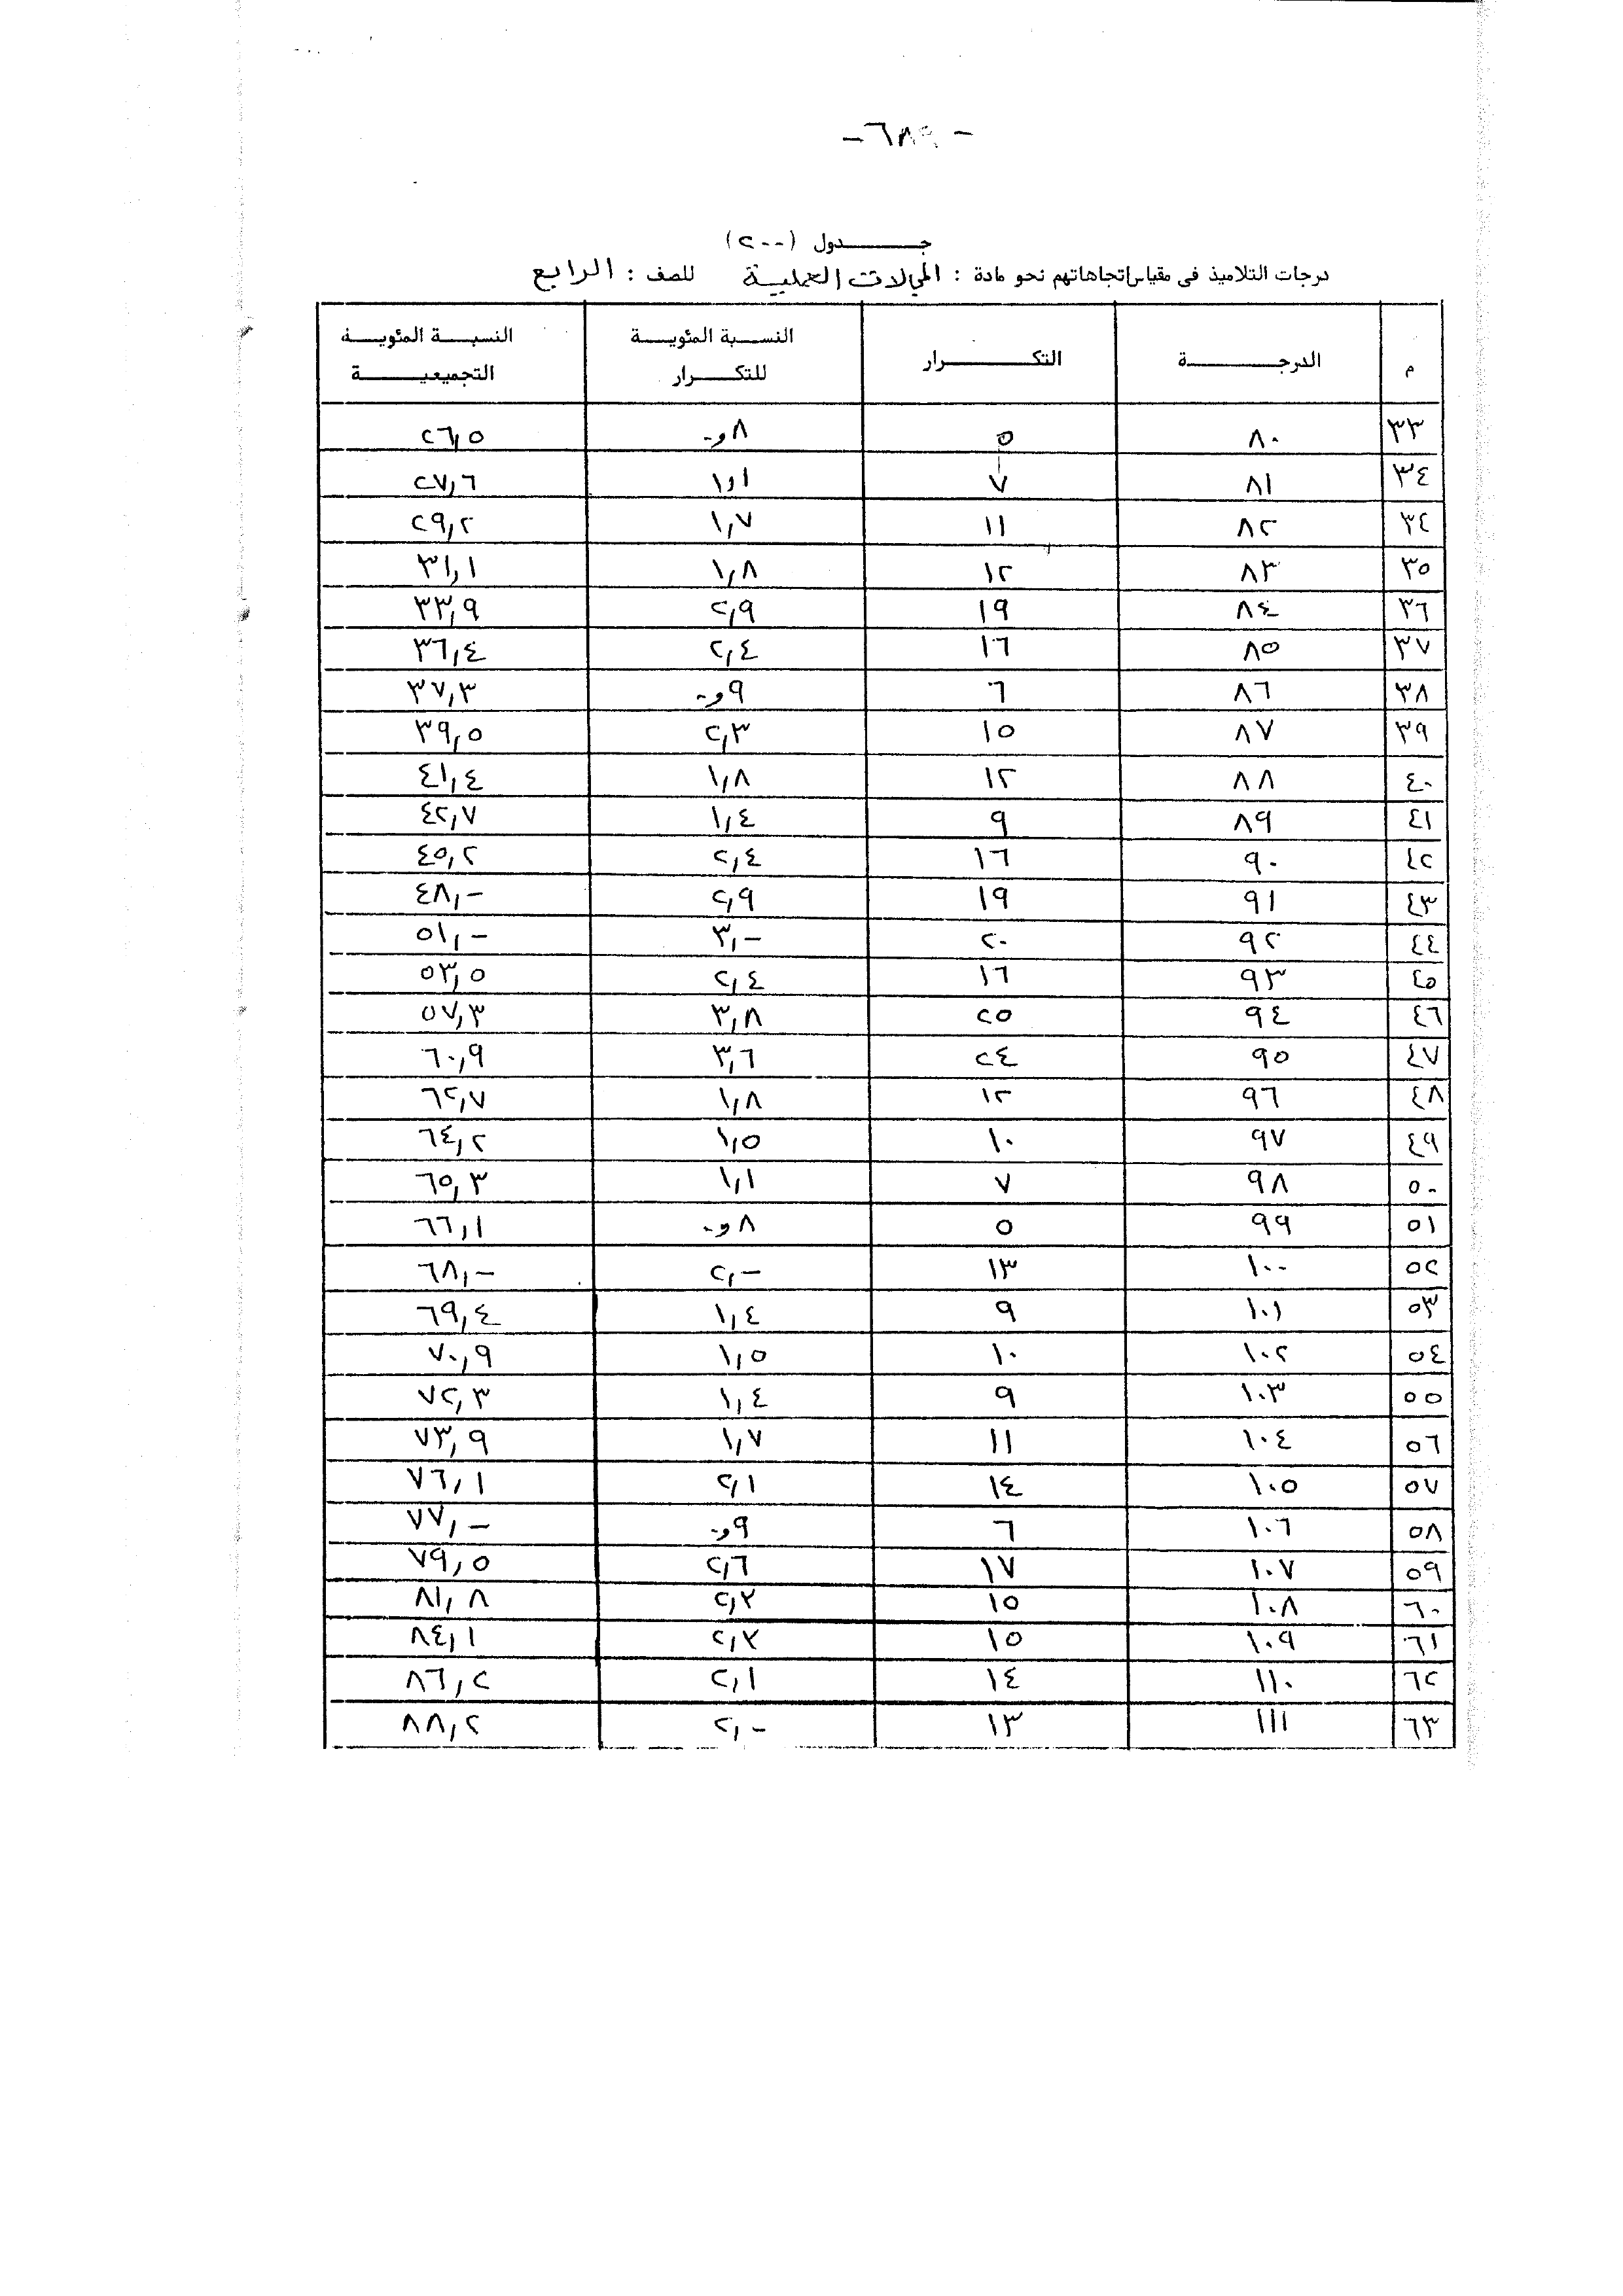 -٦٨٩-
جـــدول (٢٠٠)
درجات التلاميذ فى مقياس اتجاهاتهم نحو مادة : المجالات العملية للصف : الرابع
م الدرجـــة التكـــرار النسبة المئوية للتكـــرار النسبة المئوية التجميعيـــة
٣٣ ٨٠ ٥ ٨و٠ ٢٦,٥
٣٤ ٨١ ٧ ١و١ ٢٧,٦
٣٤ ٨٢ ١١ ١,٧ ٢٩,٢
٣٥ ٨٣ ١٢ ١,٨ ٣١,١
٣٦ ٨٤ ١٩ ٢,٩ ٣٣,٩
٣٧ ٨٥ ١٦ ٢,٤ ٣٦,٤
٣٨ ٨٦ ٦ ٩و٠ ٣٧,٣
٣٩ ٨٧ ١٥ ٢,٣ ٣٩,٥
٤٠ ٨٨ ١٢ ١,٨ ٤١,٤
٤١ ٨٩ ٩ ١,٤ ٤٢,٧
٤٢ ٩٠ ١٦ ٢,٤ ٤٥,٢
٤٣ ٩١ ١٩ ٢,٩ ٤٨,-
٤٤ ٩٢ ٢٠ ٣,- ٥١,-
٤٥ ٩٣ ١٦ ٢,٤ ٥٣,٥
٤٦ ٩٤ ٢٥ ٣,٨ ٥٧,٣
٤٧ ٩٥ ٢٤ ٣,٦ ٦٠,٩
٤٨ ٩٦ ١٢ ١,٨ ٦٢,٧
٤٩ ٩٧ ١٠ ١,٥ ٦٤,٢
٥٠ ٩٨ ٧ ١,١ ٦٥,٣
٥١ ٩٩ ٥ ٨و٠ ٦٦,١
٥٢ ١٠٠ ١٣ ٢,- ٦٨,-
٥٣ ١٠١ ٩ ١,٤ ٦٩,٤
٥٤ ١٠٢ ١٠ ١,٥ ٧٠,٩
٥٥ ١٠٣ ٩ ١,٤ ٧٢,٣
٥٦ ١٠٤ ١١ ١,٧ ٧٣,٩
٥٧ ١٠٥ ١٤ ٢,١ ٧٦,١
٥٨ ١٠٦ ٦ ٩و٠ ٧٧,-
٥٩ ١٠٧ ١٧ ٢,٦ ٧٩,٥
٦٠ ١٠٨ ١٥ ٢,٣ ٨١,٨
٦١ ١٠٩ ١٥ ٢,٣ ٨٤,١
٦٢ ١١٠ ١٤ ٢,١ ٨٦,٢
٦٣ ١١١ ١٣ ٢,- ٨٨,٢